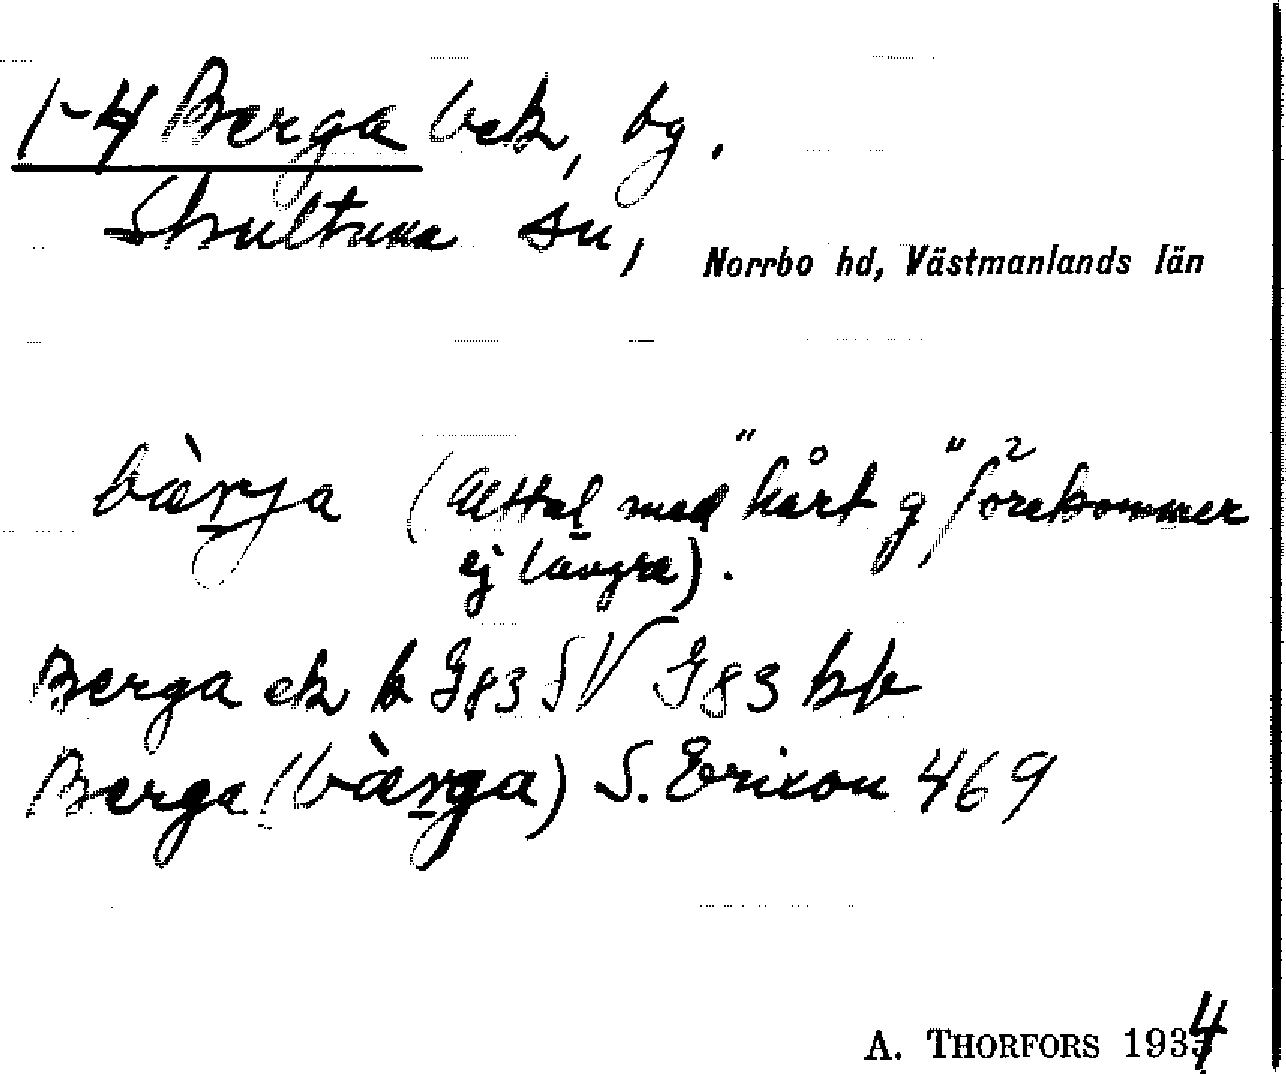 1-4 Berga bek, bg.
Skultuna sn,
Norrbo hd, Västmanlands län
bàrja (Uttal med "hårt g" förekommer
ej längre).
Berga ek k G83 SV G83 bb
Berga (bærga) S. Erixon 469
A. THORFORS 1934